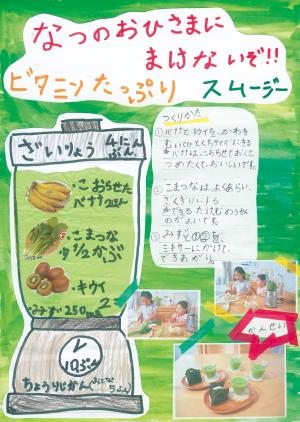 なつのおひさまに
まけないぞ!!
ビタミンたっぷり スムージー
ざいりょう 4にんぶん
・こおらせた
バナナ2ほん
・こまつな
1/2かぶ
・キウイ
2こ
・みず250ml
10ぷん
ちょうりじかん
つくりかた
①バナナとキウイを、かわを
むいてひとくちサイズにきる
バナナは、こおらせておくと、
つめたくて、おいしいです。
②こまつなは、よくあらい、
ざくぎりにする
③みずと①②を、
ミキサーにかけて、
できあがり。
かんせい